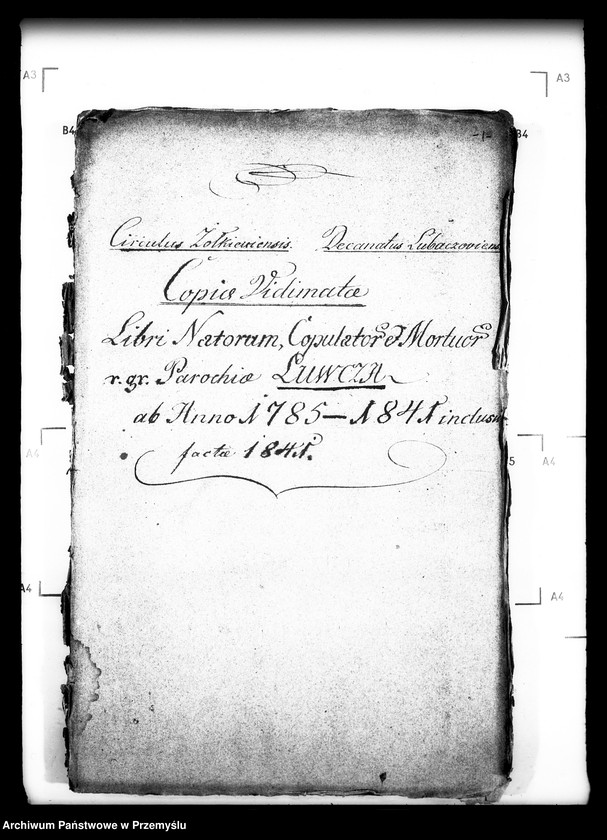 A3
A3
B4
B4
-1-
Circulus Zolkieviensis. Decanatus Lubaczoviens
Copiæ Vidimatæ
Libri Natorum, Copulator. & Mortuor.
r. gr. Parochiæ LUWCZA
ab Anno 1785 — 1841 inclus
factæ 1841.
A4
5
A4
A4
A4
Archiwum Państwowe w Przemyślu